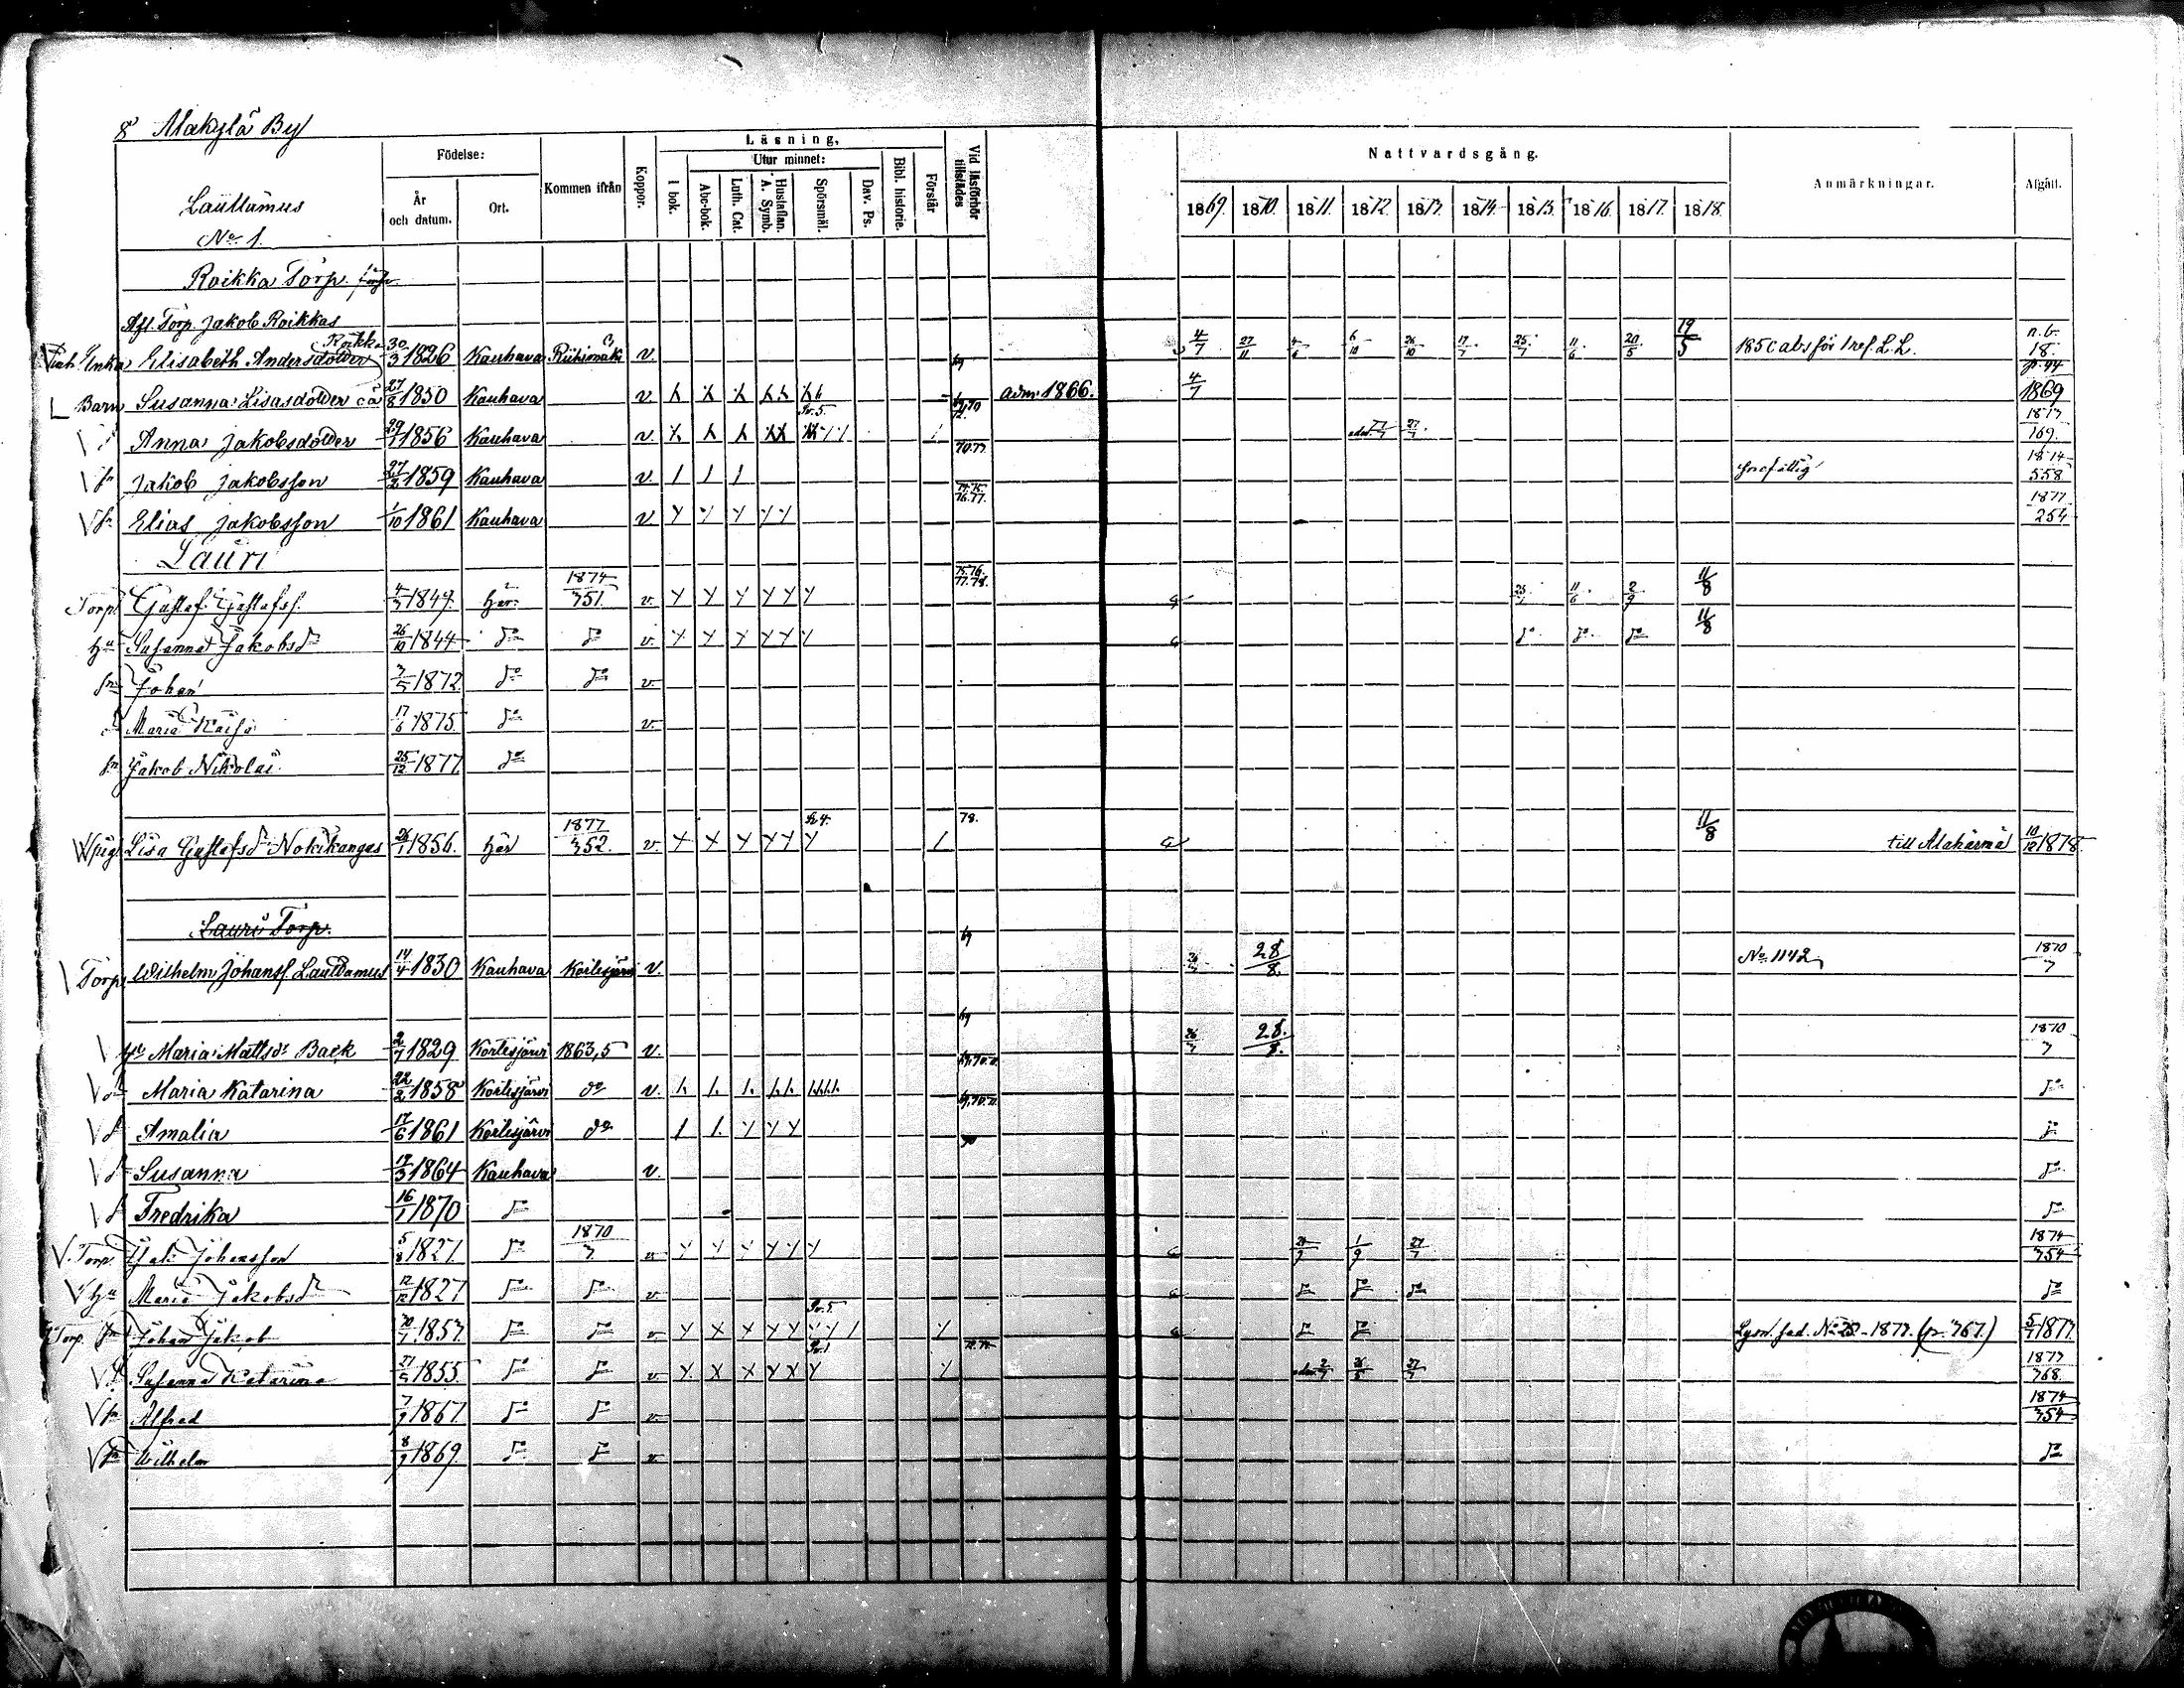 8 Alakylä By
Läsning,
Födelse:
Utur minnet:
Nattvardsgång.
Lauttamus
No 1.
År och datum.
Ort.
Kommen ifrån
Koppor.
I bok.
Abc-bok.
Luth. Cat.
Hustaflan. A. Symb.
Spörsmål.
Dav. Ps.
Bibl. historie.
Förstår
Vid läsförhör tillstädes
1869. 1870. 1871. 1872. 1873. 1874. 1875. 1876. 1877. 1878.
Anmärkningar.
Afgått.
Roikka Torp.
Afl. Torp. Jakob Roikkas
Enka Elisabeth Andersdotter Roikka 30/3 1826 Kauhava v. 4/7 27/11 6/10 26/10 17/7 25/7 11/6 20/5 19/5 1850 abs för 1 ref. L. L. n.b. 18. p. 44
Barn Susanna Lisasdotter oä 27/8 1850 Kauhava v. adm. 1866. 4/7 1869
Anna Jakobsdotter 29/7 1856 Kauhava v. 70.73. 27/7 1873 169.
sn Jakob Jakobsson 27/2 1859 Kauhava v. 1874 558
sn Elias Jakobsson 1/10 1861 Kauhava v 76.77. 1877 254
Lauri
Torp. Gustaf Gustafss. 4/3 1849 här 1874 351. v. 75.76. 77.78. 25/7 11/6 2/9 11/8
Hu Susanna Jakobsdr 26/10 1844 do do v. do do do 11/8
sn Johan 3/5 1872 do do v.
dr Maria Kaisa 17/6 1875 do v.
sn Jakob Nikolai 25/12 1877 do
pig. Lisa Gustafsdr Nokikangas 26/1 1856. här 1877 352. v. 78. 11/8 till Alahärmä 10/12 1878
Lauri Torp.
Torp. Wilhelm Johanss. Lauttamus 14/4 1830 Kauhava Kortesjärvi v. 28/8. No 1142 1870 7
Hu Maria Mattsdr Back 2/7 1829 Kortesjärvi 1863,5 v. 28/8. 1870 7
dr Maria Katarina 22/2 1858 Kortesjärvi do v. do
dr Amalia 17/6 1861 Kortesjärvi do do
dr Susanna 19/3 1864 Kauhava v. do
dr Fredrika 16/1 1870 do do
Torp. Johansson 5/8 1827. do 1870 7. v 1/9 27/7 1874 354
Hu Maria Jakobsdr 12/12 1827 do do v do do do do
Torp. sn Johan Jakob 1853 do do v do do Lysn. sed. 1877. (p. 767.) 5/7 1877.
dr Susanna Katarina 21/5 1855 do do v 27/7 1873 768.
sn Alfred 1867 do do v 1874 354
sn Wilhelm 1869. do do v do